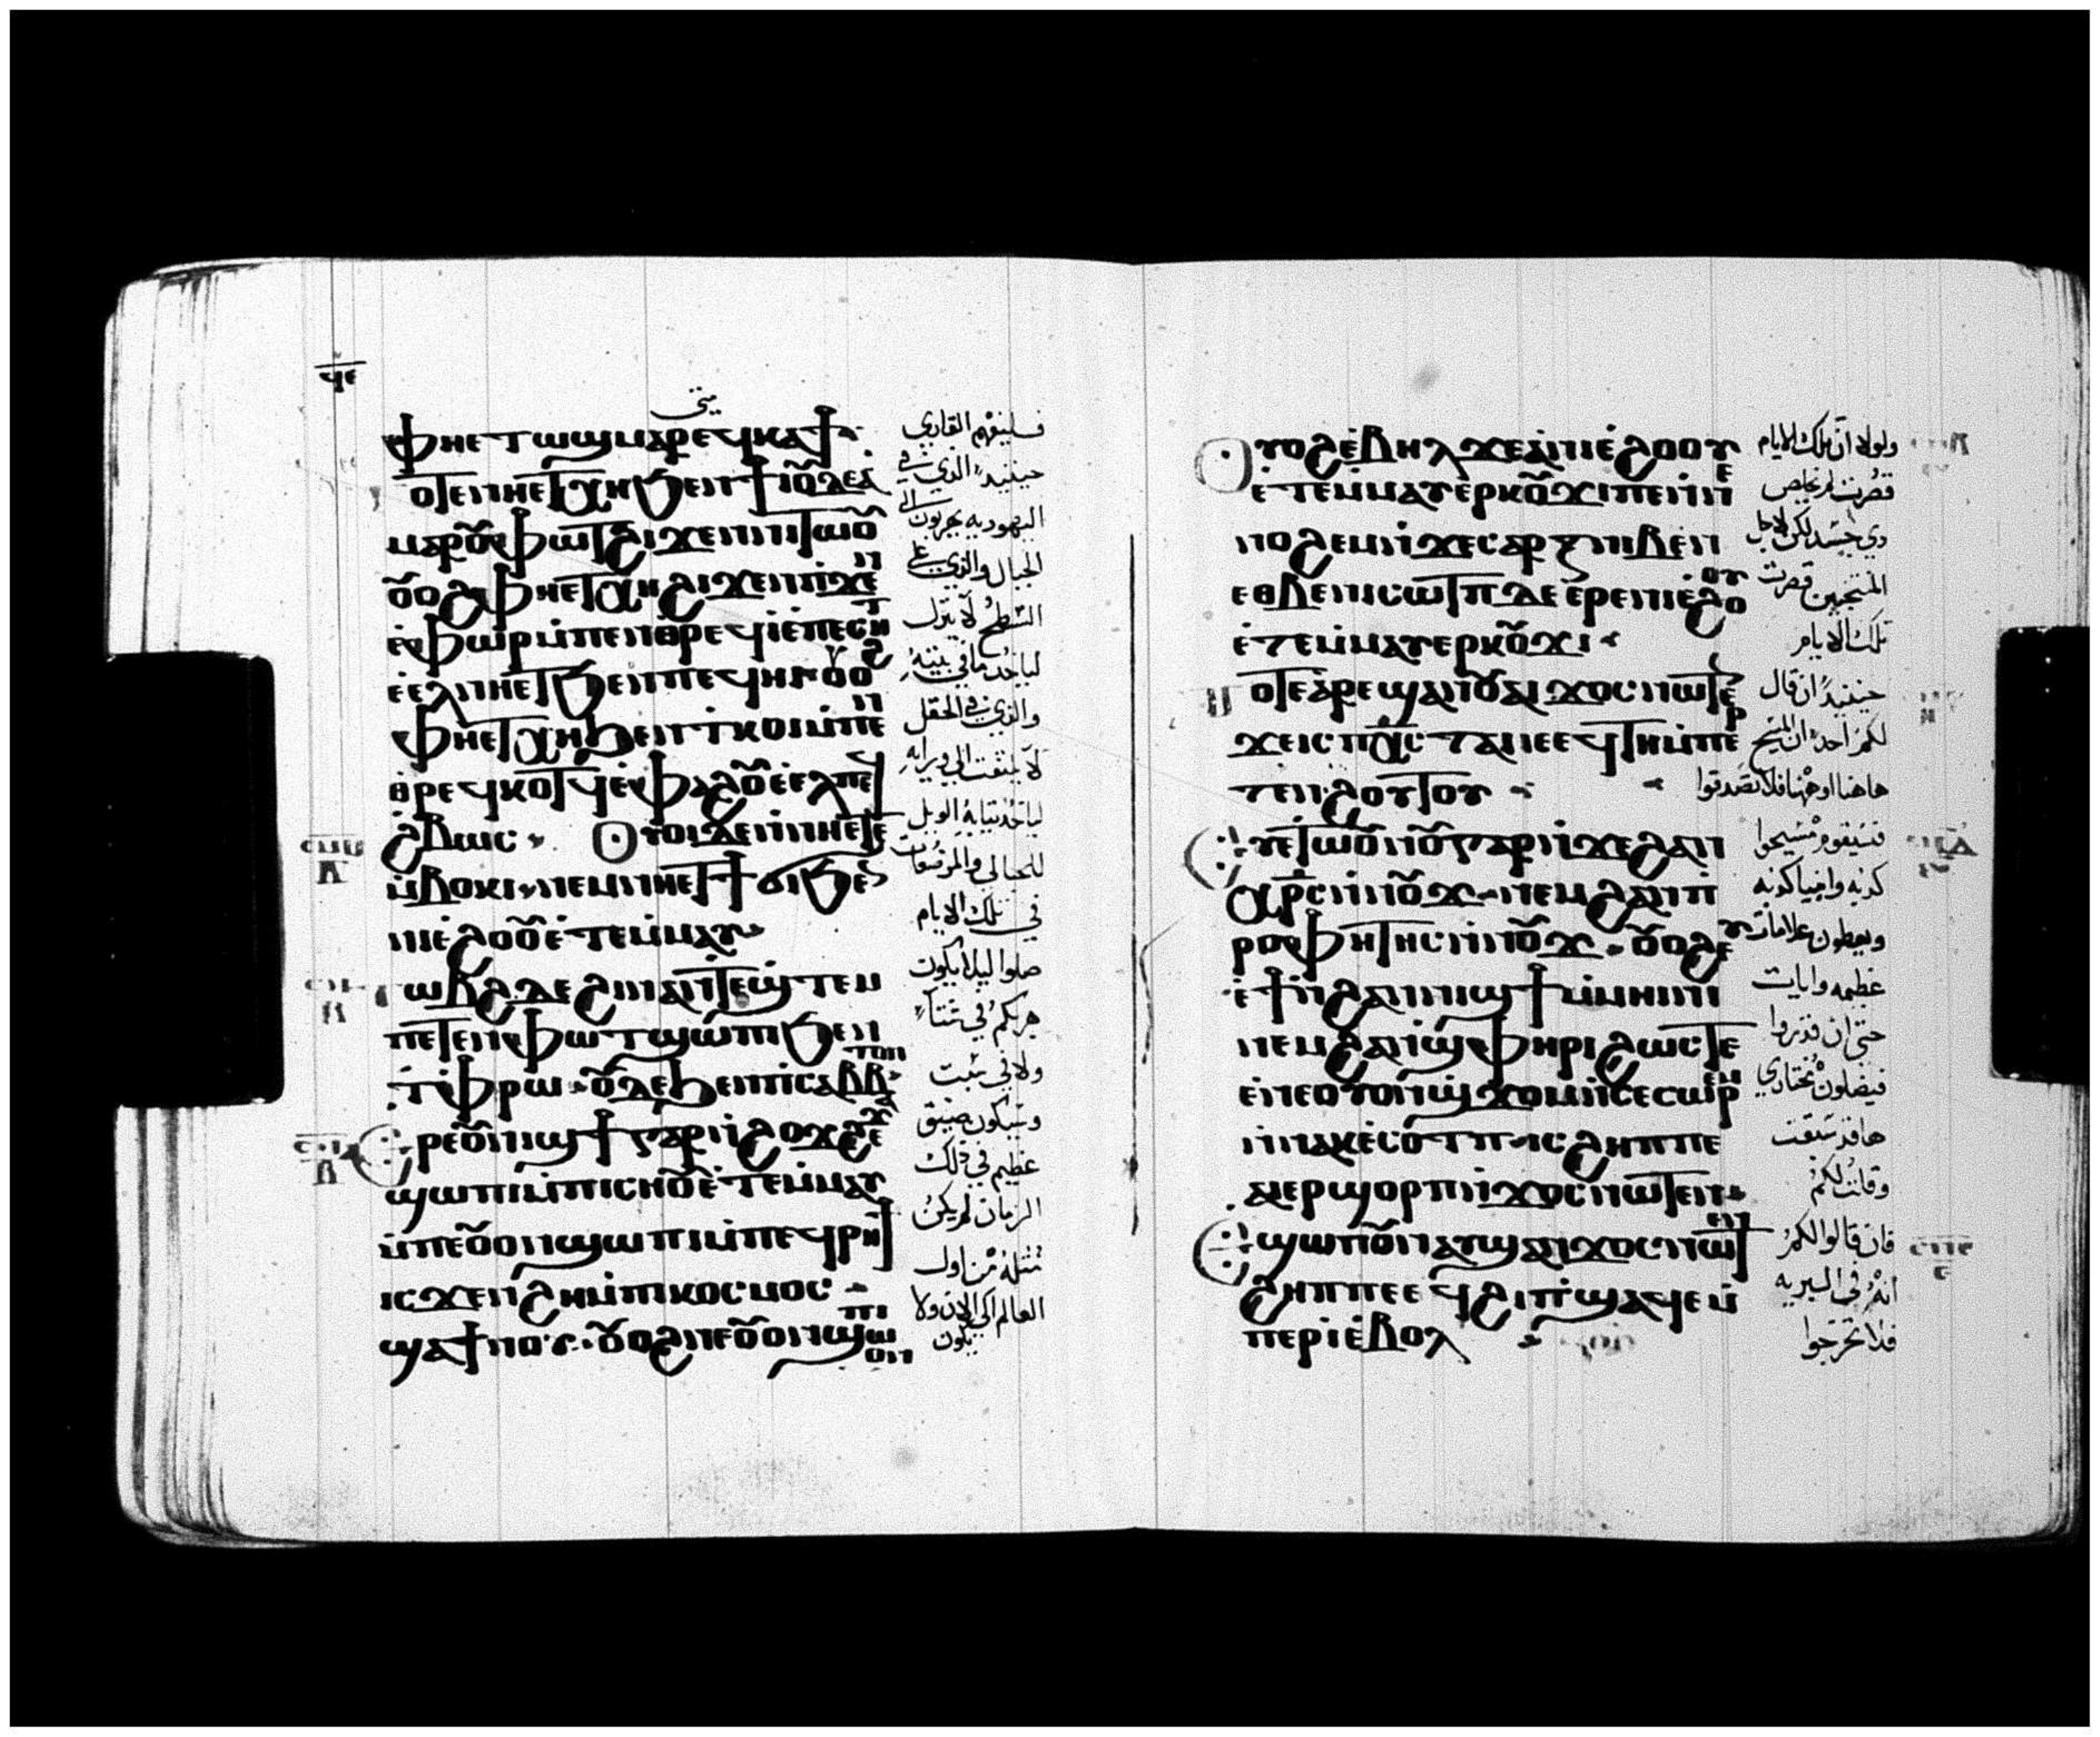 ϥⲉ
متى
ⲫⲏⲉⲧⲱϣ ⲙⲁⲣⲉϥⲕⲁϯ
ⲟⲧⲉ ⲛⲏⲉⲧⲭⲏ ϧⲉⲛ ϯⲓⲟⲩⲇⲉⲁ
ⲙⲁⲣⲟⲩⲫⲱⲧ ϩⲓϫⲉⲛ ⲛⲓⲧⲱⲟⲩ
ⲟⲩⲟϩ ⲫⲏⲉⲧⲭⲏ ϩⲓϫⲉⲛ ⲡⲓϫⲉⲛ
ⲉⲫⲱⲣ ⲙⲡⲉⲛⲑⲣⲉϥⲓ ⲉⲡⲉⲥⲏⲧ
ⲉⲉⲗ ⲛⲏⲉⲧϧⲉⲛ ⲡⲉϥⲏⲓ ⲟⲩⲟϩ
ⲫⲏⲉⲧⲭⲏ ϧⲉⲛ ⲧⲕⲟⲓ ⲙⲡⲉⲛ
ⲑⲣⲉϥⲕⲟⲧϥ ⲉⲫⲁϩⲟⲩ ⲉⲉⲗ ⲡⲉϥ
ϩⲃⲱⲥ ⲟⲩⲟⲓ ⲇⲉ ⲛⲛⲏⲉⲧⲉ
ⲙⲃⲟⲕⲓ ⲛⲉⲙ ⲛⲏⲉⲧϯϭⲓ ϧⲉⲛ
ⲛⲓⲉϩⲟⲟⲩ ⲉⲧⲉⲙⲙⲁⲩ
ⲧⲱⲃϩ ⲇⲉ ϩⲓⲛⲁ ⲛⲧⲉϣⲧⲉⲙ
ⲡⲉⲧⲉⲛⲫⲱⲧ ϣⲱⲡⲓ ϧⲉⲛ
ⲧⲫⲣⲱ ⲟⲩⲇⲉ ϧⲉⲛ ⲡⲓⲥⲁⲃⲃⲁⲧⲟⲛ
ⲉⲣⲉ ⲟⲩⲛⲓϣϯ ⲅⲁⲣ ⲛϩⲟϫϩⲉϫ
ϣⲱⲡⲓ ⲙⲡⲓⲥⲏⲟⲩ ⲉⲧⲉⲙⲙⲁⲩ
ⲙⲡⲉ ⲟⲩⲟⲛ ϣⲱⲡⲓ ⲙⲡⲉϥⲣⲏϯ
ⲓⲥϫⲉⲛ ϩⲏ ⲙⲡⲓⲕⲟⲥⲙⲟⲥ
ϣⲁ ϯⲛⲟⲩ ⲟⲩⲟϩ ⲛⲉ ⲟⲩⲟⲛ ϣⲱⲡⲓ ⲟⲛ
فليفهم القاري
حينيذ الذين في
اليهوديه يهربون الى
الجبال والذي على
السطح لا ينزل
لياخذ ما في بيته
والذي في الحقل
لا يلتفت الى ورايه
لياخذ ثيابه الويل
للحبالى والمرضعات
في تلك الايام
صلوا ليلا يكون
هربكم في شتاء
ولا في سبت
وسيكون ضيق
عظيم في ذلك
الزمان لم يكن
مثله من اول
العالم الى الان ولا
يكون
ⲟⲩⲟϩ ⲉⲃⲏⲗ ϫⲉ ⲁ ⲛⲓⲉϩⲟⲟⲩ
ⲉⲧⲉⲙⲙⲁⲩ ⲉⲣⲕⲟⲩϫⲓ ⲡⲉ
ⲛⲟϩⲉⲙ ⲛϫⲉ ⲥⲁⲣⲝ ⲛⲓⲃⲉⲛ
ⲉⲑⲃⲉ ⲛⲓⲥⲱⲧⲡ ⲇⲉ ⲉⲣⲉ ⲛⲓⲉϩⲟⲟⲩ
ⲉⲧⲉⲙⲙⲁⲩ ⲉⲣⲕⲟⲩϫⲓ
ⲧⲟⲧⲉ ⲁⲣⲉϣⲁⲛ ⲟⲩⲁⲓ ϫⲟⲥ ⲛⲱⲧⲉⲛ
ϫⲉ ⲓⲥ ⲡⲭⲥ ⲧⲁⲓ ⲓⲉ ⲉϥⲧⲏ ⲙⲡⲉⲣ
ⲧⲉⲛϩⲟⲩⲧⲟⲩ
ⲉⲩⲉⲧⲱⲟⲩⲛⲟⲩ ⲅⲁⲣ ⲛϫⲉ ϩⲁⲛ
ⲭⲣⲥ ⲛⲛⲟⲩϫ ⲛⲉⲙ ϩⲁⲛⲡ
ⲣⲟⲫⲏⲧⲏⲥ ⲛⲛⲟⲩϫ ⲟⲩⲟϩ ⲉⲩ
ⲉϯ ⲛϩⲁⲛⲛⲓϣϯ ⲙⲙⲏⲓⲛⲓ
ⲛⲉⲙ ϩⲁⲛϣⲫⲏⲣⲓ ϩⲱⲥⲧⲉ
ⲉⲛⲉ ⲟⲩⲟⲛ ϣϫⲟⲙ ⲛⲥⲉⲥⲱⲣⲉⲙ
ⲛⲛⲁⲕⲉⲥⲱⲧⲡ ⲓⲥ ϩⲏⲡⲡⲉ
ⲁⲓⲉⲣϣⲟⲣⲡ ⲛϫⲟⲥ ⲛⲱⲧⲉⲛ
ⲉϣⲱⲡ ⲟⲩⲛ ⲁⲩϣⲁⲛϫⲟⲥ ⲛⲱⲧⲉⲛ
ϩⲏⲡⲡⲉ ⲉϥϩⲓ ⲡϣⲁϥⲉ ⲙ
ⲡⲉⲣⲓ ⲉⲃⲟⲗ
ولولا ان تلك الايام
قصرت لم يخلص
ذي جسد لكن لاجل
المنتجبين قصرت
تلك الايام
حينيذ ان قال
لكم احد ان المسيح
هاهنا او هنا فلا تصدقوا
فسيقوم مسيحوا
كذبه وانبيا كذبه
ويعطون علامات
عظيمه وايات
حتى ان قدروا
فيضلون مختاري
هاقد سبقت
وقلت لكم
فان قالوا لكم
انه في البريه
فلا تخرجوا